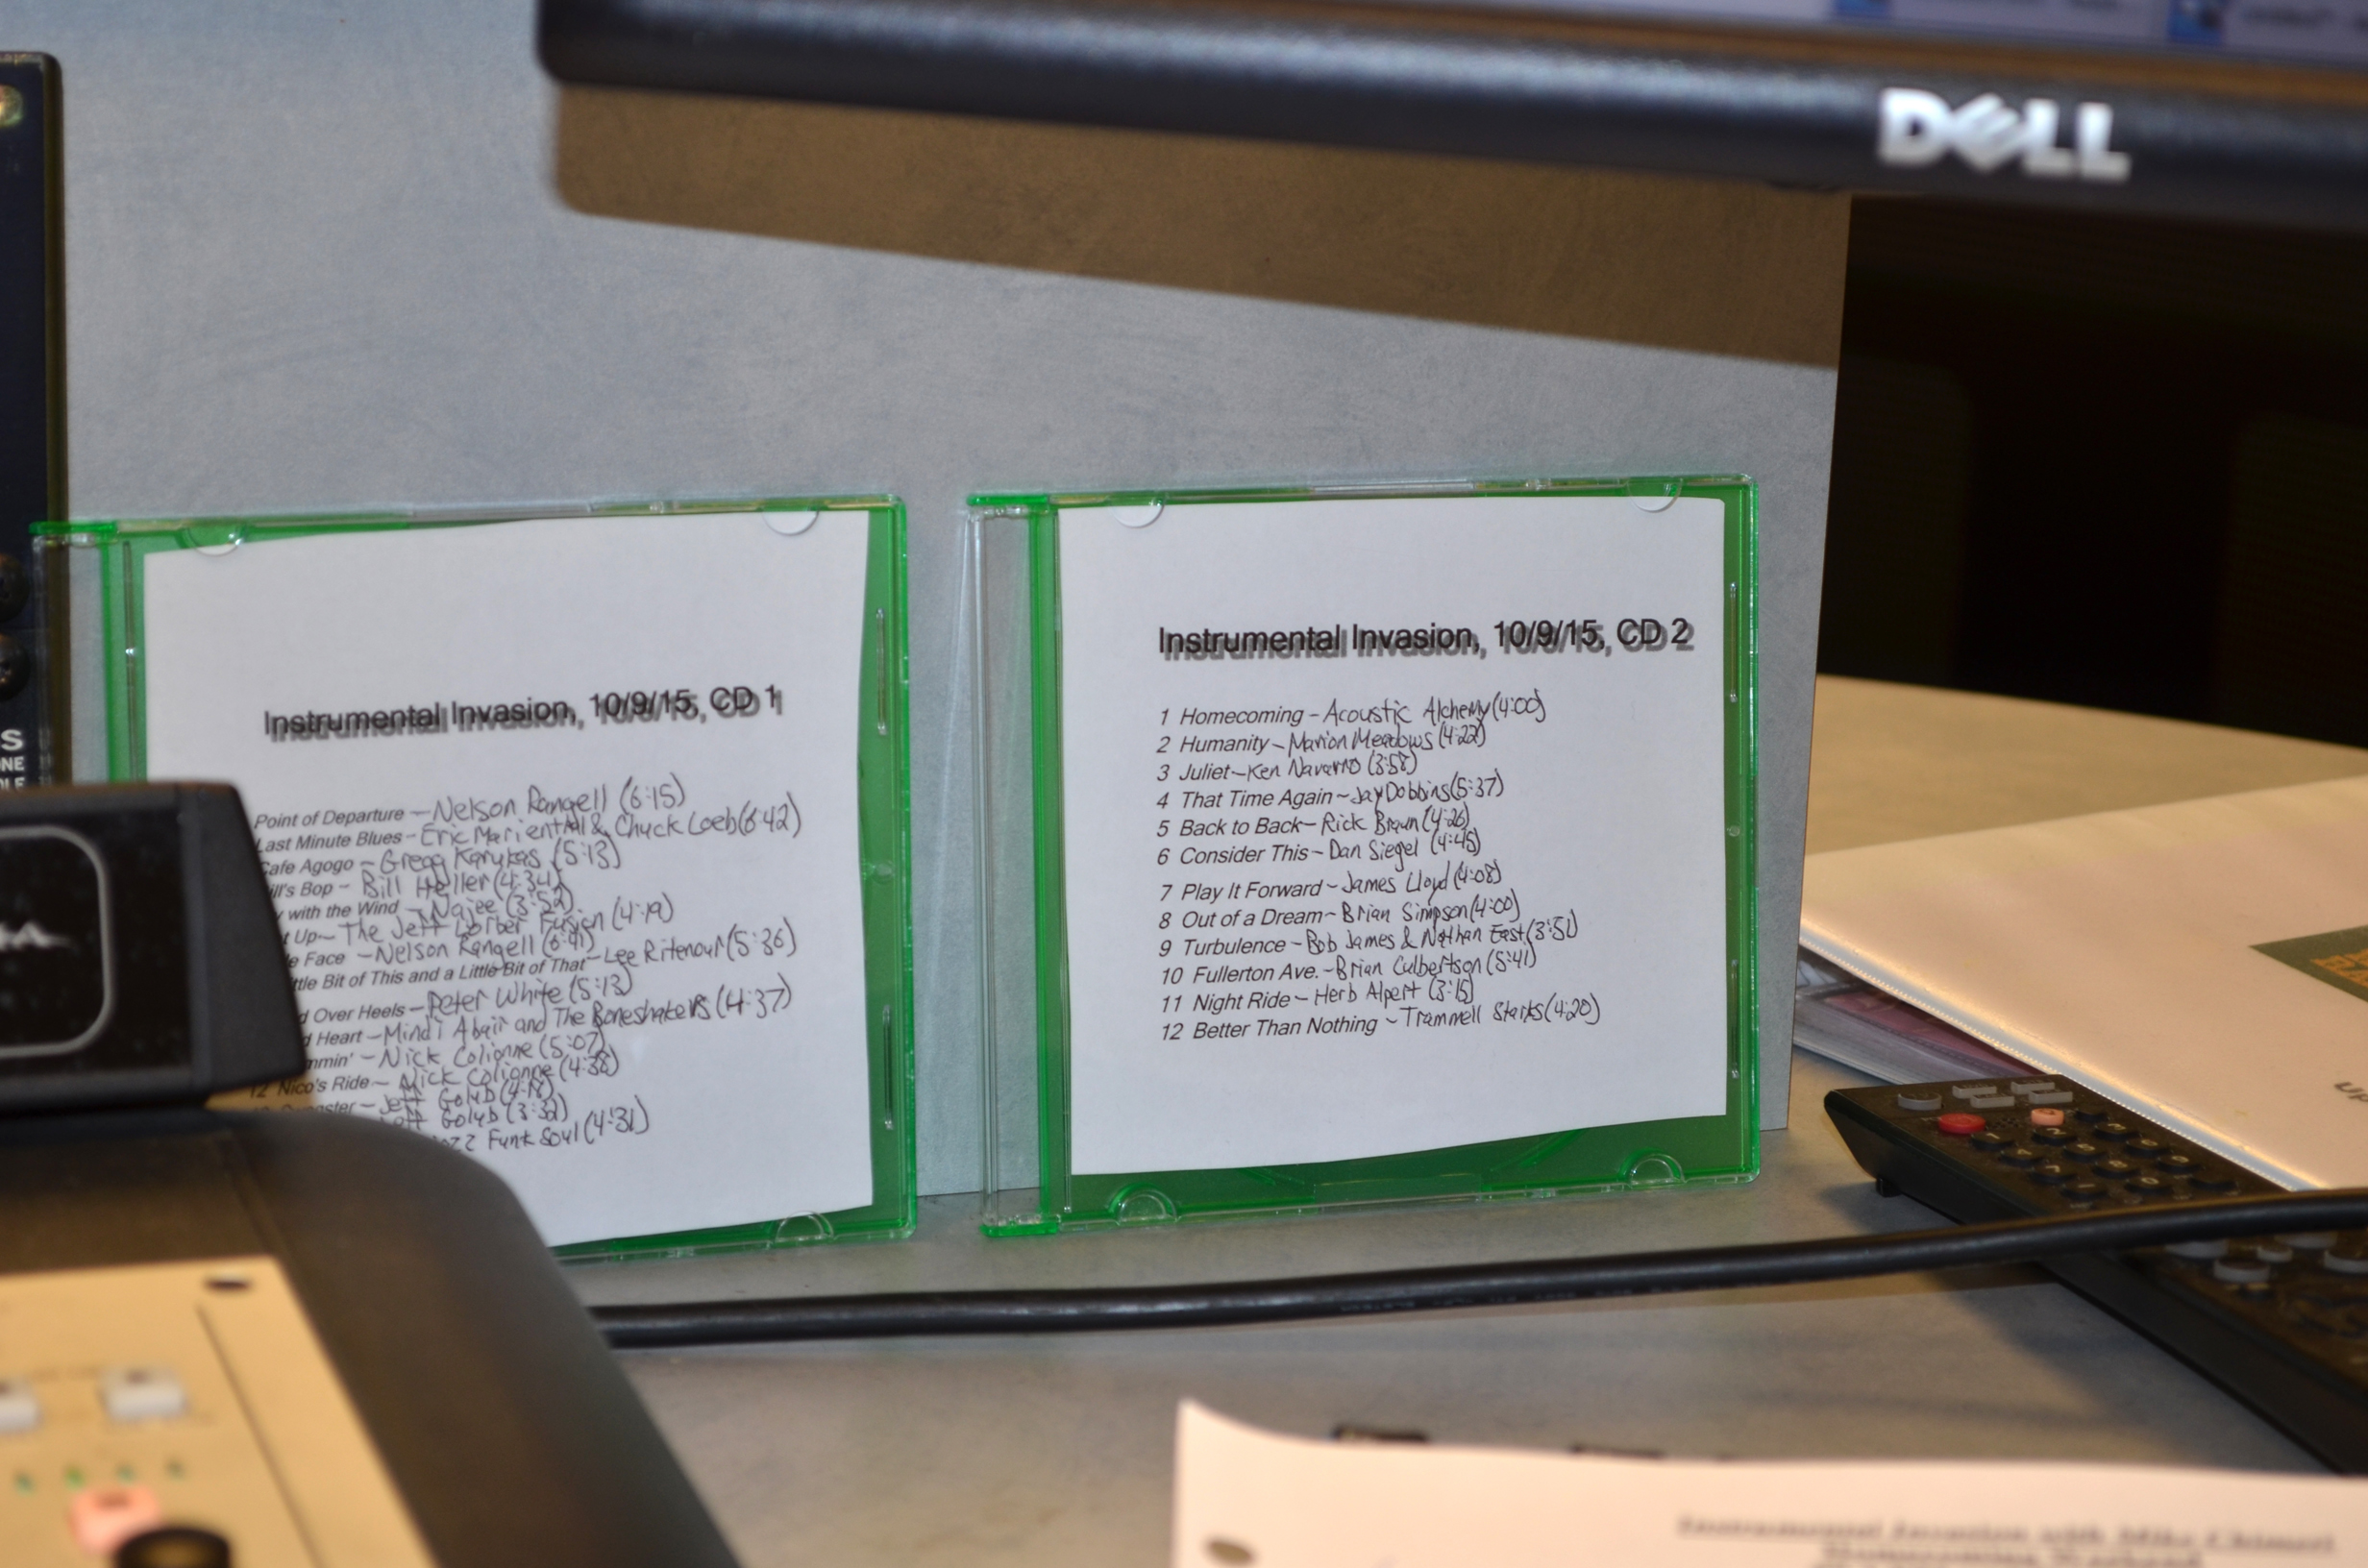 DELL
S
ONE
Instrumental Invasion, 10/9/15, CD 1
Point of Departure - Nelson Rangell (6:15)
Last Minute Blues - Eric Marienthal & Chuck Loeb (6:42)
Cafe Agogo - Gregg Karukas (5:13)
ill's Bop - Bill Heller (4:34)
with the Wind - Najee (3:52)
t Up - The Jeff Lorber Fusion (4:19)
e Face - Nelson Rangell (6:41)
ttle Bit of This and a Little Bit of That - Lee Ritenour (5:36)
d Over Heels - Peter White (5:13)
d Heart - Mindi Abair and The Boneshakers (4:37)
mmin' - Nick Colionne (5:07)
12 Nico's Ride - Nick Colionne (4:38)
ster - Jeff Golub
Jeff Golub (3:32)
zz Funk Soul (4:31)
Instrumental Invasion, 10/9/15, CD 2
1 Homecoming - Acoustic Alchemy (4:00)
2 Humanity - Marion Meadows (4:22)
3 Juliet - Ken Navarro (3:58)
4 That Time Again - Jay Dobbins (5:37)
5 Back to Back - Rick Braun (4:26)
6 Consider This - Dan Siegel (4:45)
7 Play It Forward - James Lloyd (4:08)
8 Out of a Dream - Brian Simpson (4:00)
9 Turbulence - Bob James & Nathan East (3:51)
10 Fullerton Ave. - Brian Culbertson (5:41)
11 Night Ride - Herb Alpert (3:15)
12 Better Than Nothing - Trammell Starks (4:20)
UP
Instrumental Invasion with Mike Chimeri